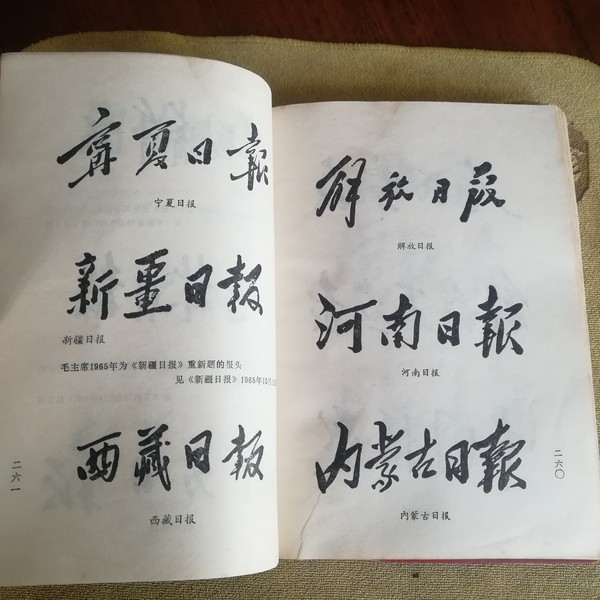 解放日报
解放日报
河南日報
河南日报
内蒙古日報
内蒙古日报
二六〇
寧夏日報
宁夏日报
新畺日报
新疆日报
毛主席1965年为《新疆日报》重新题的报头
见《新疆日报》1965年10月
西藏日报
西藏日报
二六一